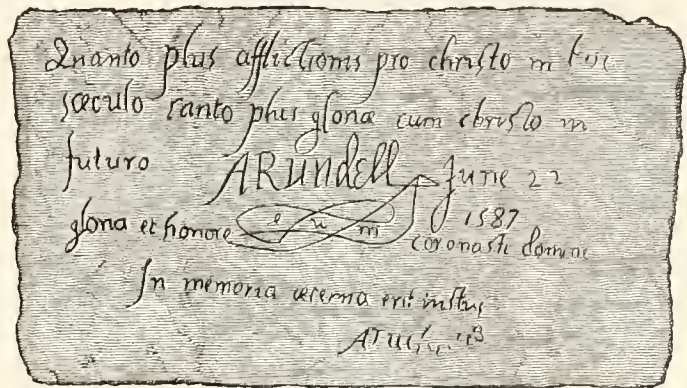 Quanto plus afflictionis pro christo in hoc
sæculo tanto plus gloriæ cum christo in
futuro ARUndell June 22
1587
gloria et honore eum coronasti domine
In memoria æterna erit iustus